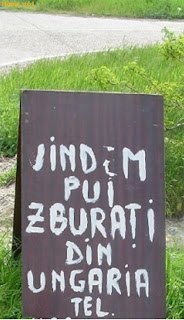 JINDEM
PUI
ZBURAȚI
DIN
UNGARIA
TEL.